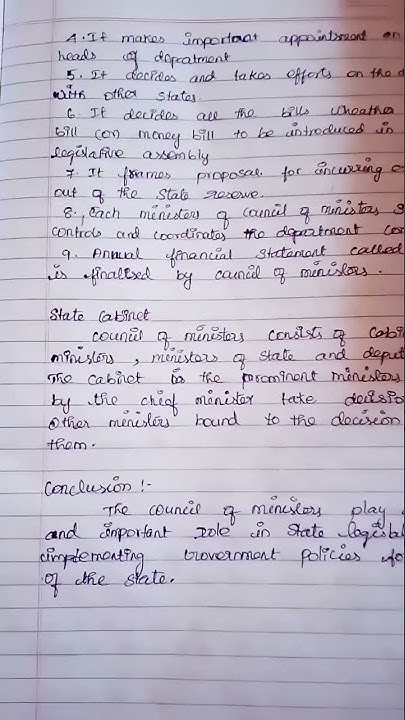 4. It makes important appointment on
heads of department
5. It decides and takes efforts on the
with other states.
6. It decides all the bills wheathe
bill (on money bill to be introduced in
legislative assembly
7. It frames proposal for incurring
out of the State reserve.
8. Each ministers of council of ministers
controls and coordinates the department
9. Annual financial statement called
is finalised by council of ministers.
State Cabinet
Council of ministers consists of Cabin
ministers, ministers of state and deput
The cabinet is the prominent ministers
by the chief minister take decisio
Other ministers bound to the decision
them.
Conclusion :-
The council of ministers play
and important role in state legisla
implementing Government policies fo
of the state.